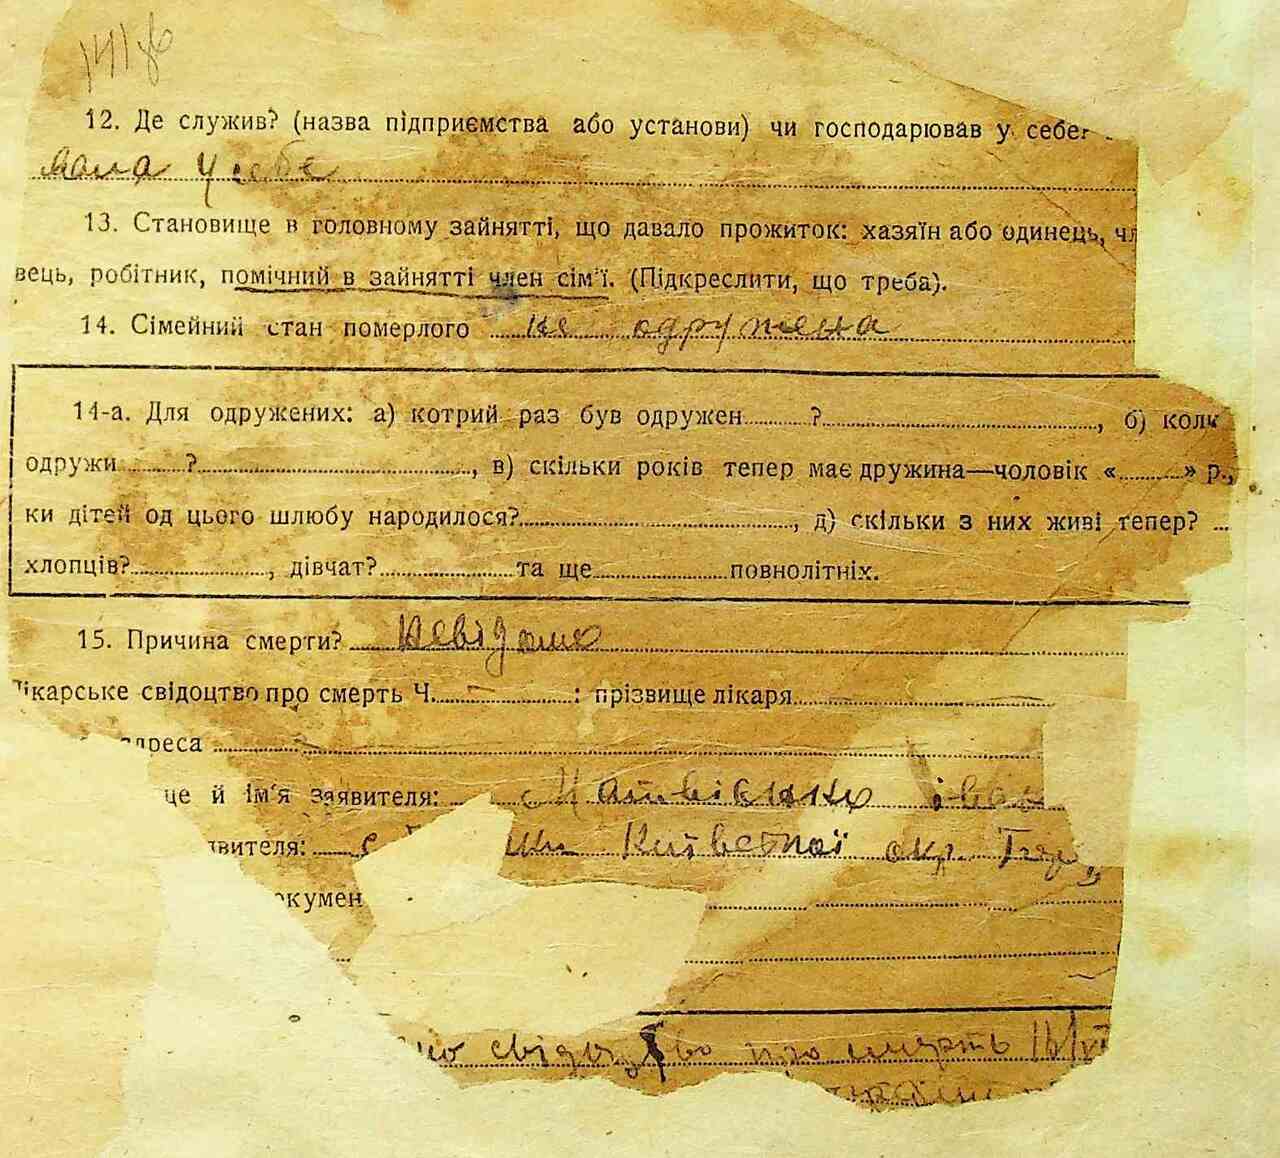 12. Де служив? (назва підприємства або установи) чи господарював у себе?
мала у себе
13. Становище в головному зайнятті, що давало прожиток: хазяїн або одинець, чл
вець, робітник, помічний в зайнятті член сім'ї. (Підкреслити, що треба).
14. Сімейний стан померлого не одружена
14-а. Для одружених: а) котрий раз був одружен ? , б) коли
одружи ? , в) скільки років тепер має дружина—чоловік « » р.,
ки дітей од цього шлюбу народилося? , д) скільки з них живі тепер?
хлопців? , дівчат? та ще повнолітніх.
15. Причина смерти? Невідомо
лікарське свідоцтво про смерть Ч. : прізвище лікаря
адреса
ще й ім'я заявителя: Матвієнко Іван
явителя: с Київської окр.
окумен
но свідоцтво про смерть